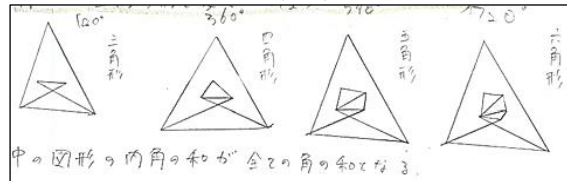 180° 360° 540° 720°
三角形 四角形 五角形 六角形
中の図形の内角の和が全ての角の和となる.